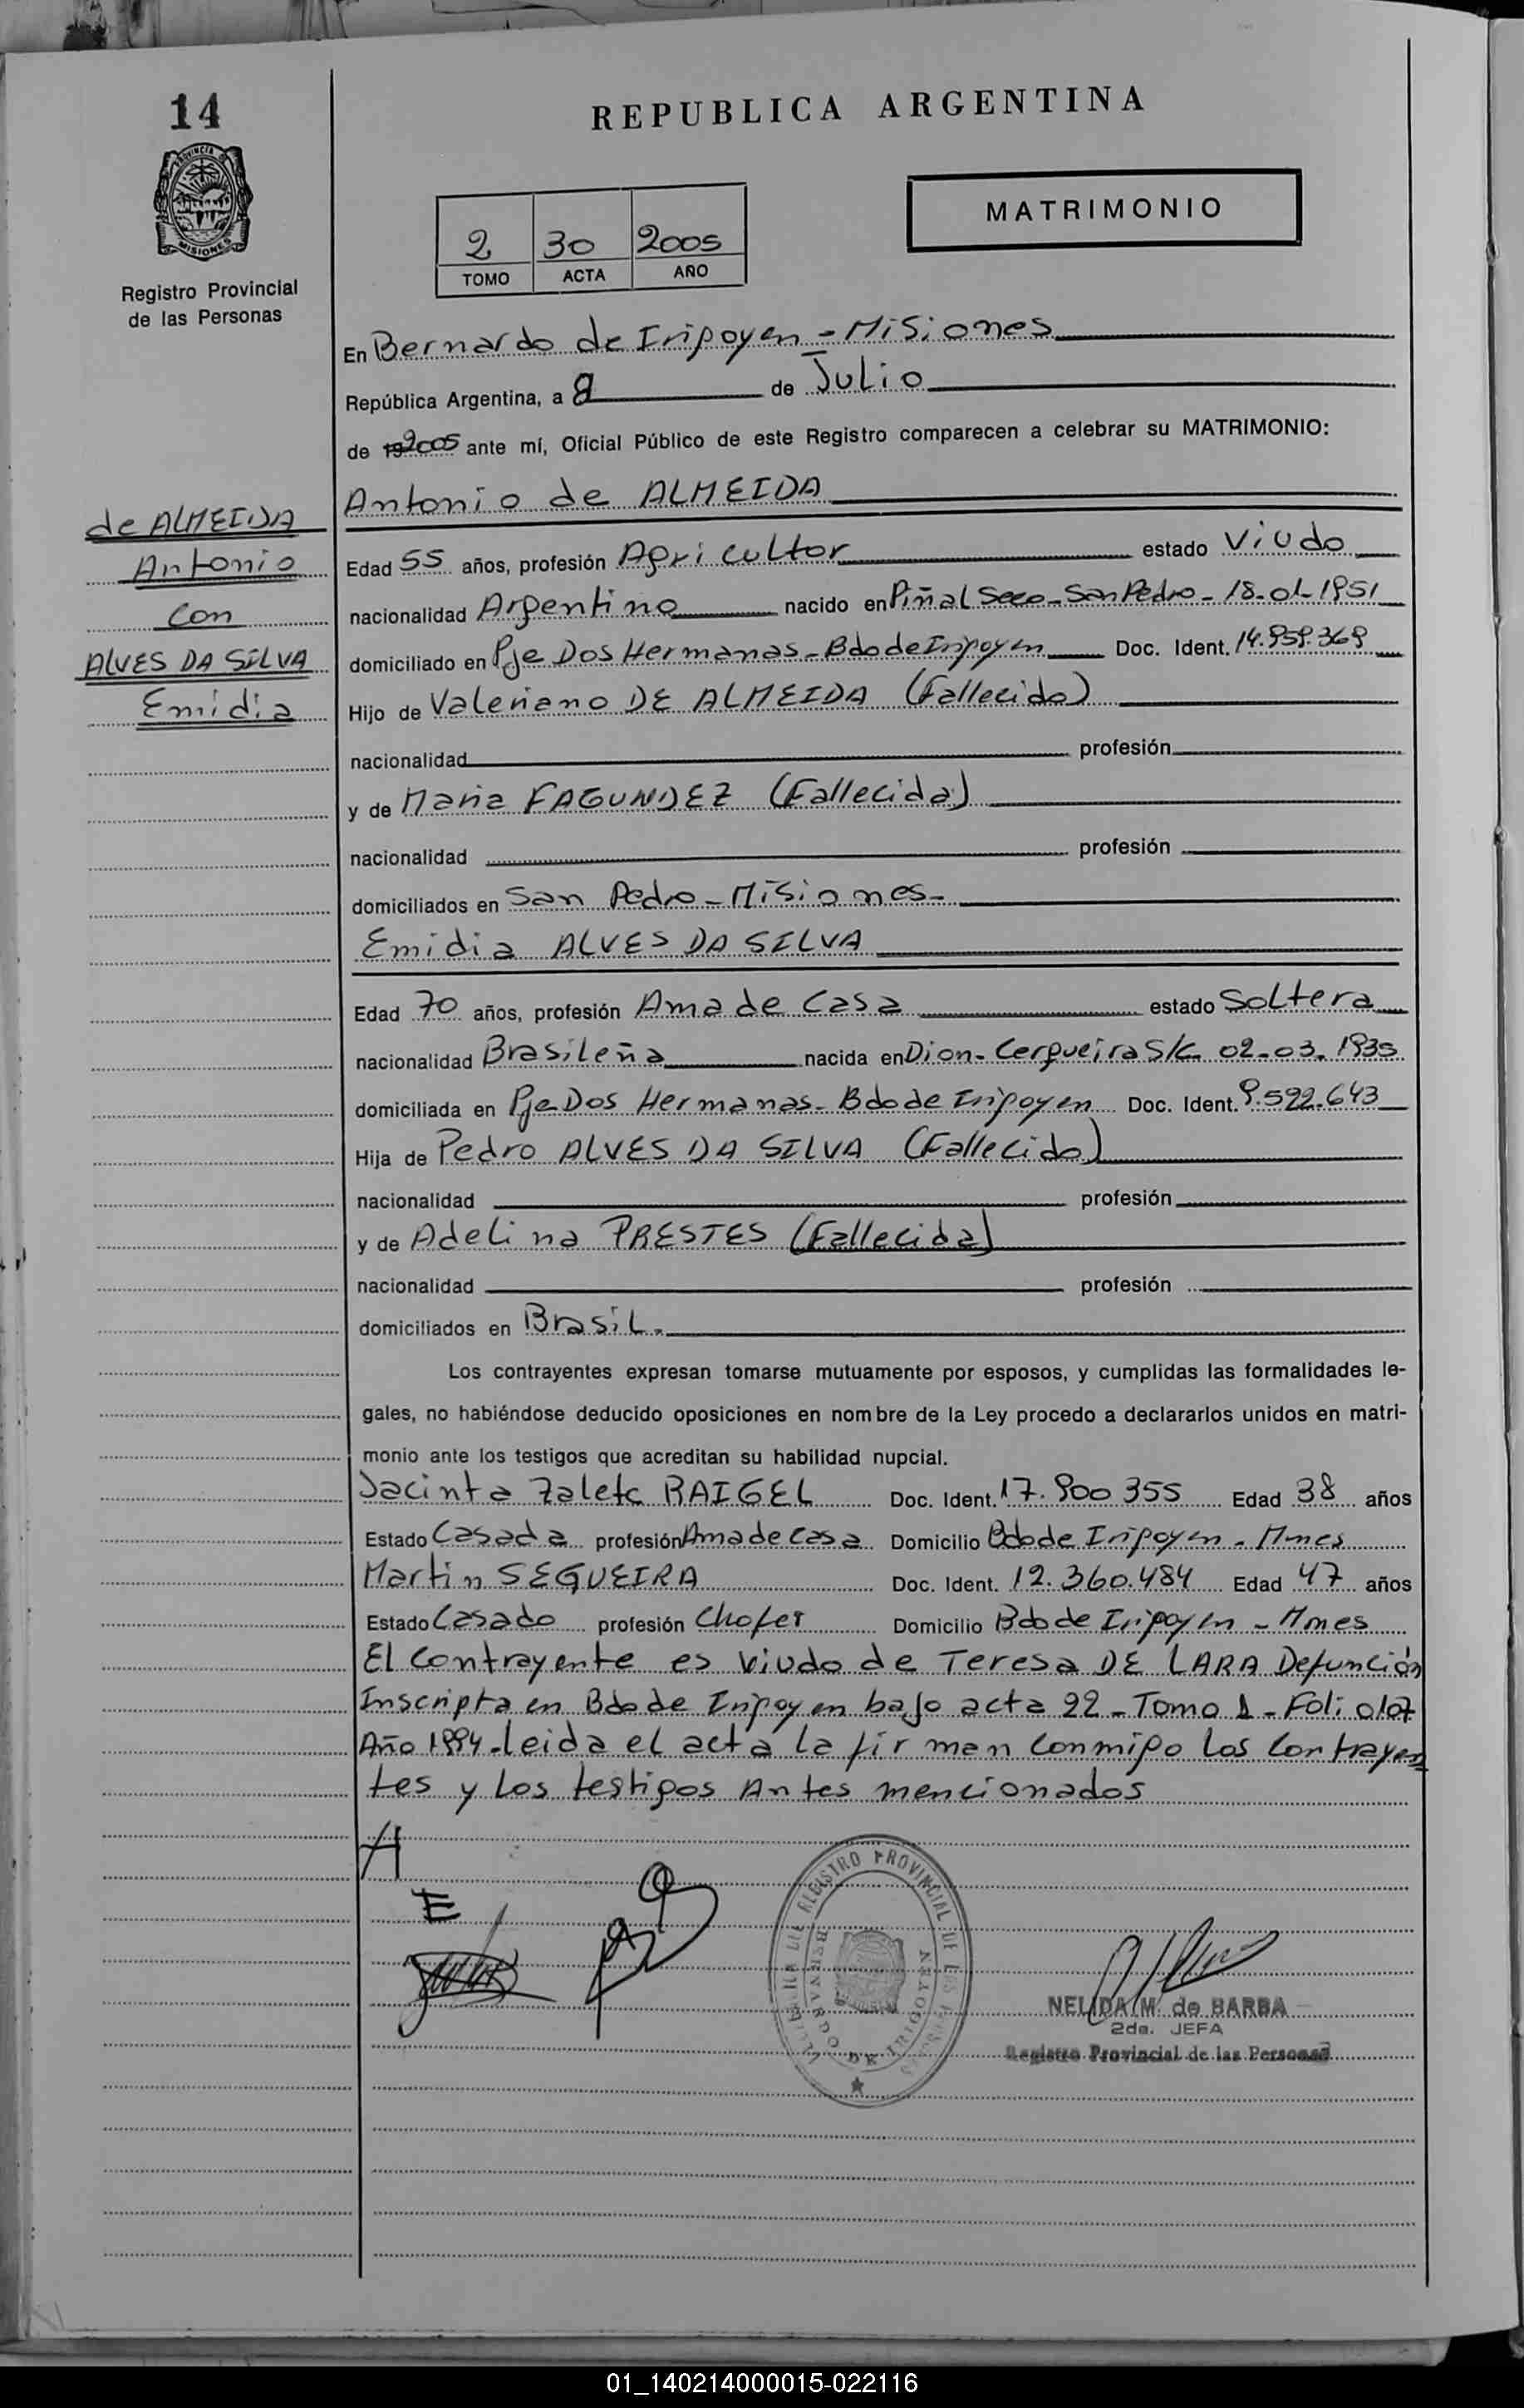 14
REPUBLICA ARGENTINA
PROVINCIA DE
MISIONES
Registro Provincial
de las Personas
MATRIMONIO
2 30 2005
TOMO ACTA AÑO
En Bernardo de Irigoyen - Misiones
República Argentina, a 8 de Julio
de 192005 ante mí, Oficial Público de este Registro comparecen a celebrar su MATRIMONIO:
de ALMEIDA
Antonio
con
ALVES DA SILVA
Emidia
Antonio de ALMEIDA
Edad 55 años, profesión Agricultor estado Viudo
nacionalidad Argentino nacido en Piñal Seco - San Pedro - 18-01-1951
domiciliado en Pje Dos Hermanas - Bdo de Irigoyen Doc. Ident. 14.959.369
Hijo de Valeriano DE ALMEIDA (Fallecido)
nacionalidad profesión
y de Maria FAGUNDEZ (Fallecida)
nacionalidad profesión
domiciliados en San Pedro - Misiones -
Emidia ALVES DA SILVA
Edad 70 años, profesión Ama de Casa estado Soltera
nacionalidad Brasileña nacida en Dion. Cerqueira S/C 02-03-1935
domiciliada en Pje Dos Hermanas - Bdo de Irigoyen Doc. Ident. 9.592.643
Hija de Pedro ALVES DA SILVA (Fallecido)
nacionalidad profesión
y de Adelina PRESTES (Fallecida)
nacionalidad profesión
domiciliados en Brasil.
Los contrayentes expresan tomarse mutuamente por esposos, y cumplidas las formalidades le-
gales, no habiéndose deducido oposiciones en nombre de la Ley procedo a declararlos unidos en matri-
monio ante los testigos que acreditan su habilidad nupcial.
Jacinta Zalete RAIGEL Doc. Ident. 17.900 355 Edad 38 años
Estado Casada profesión Ama de Casa Domicilio Bdo de Irigoyen - Mnes
Martin SEGUEIRA Doc. Ident. 12.360.484 Edad 47 años
Estado Casado profesión Chofer Domicilio Bdo de Irigoyen - Mnes
El Contrayente es Viudo de Teresa DE LARA Defunción
Inscripta en Bdo de Irigoyen bajo acta 22 - Tomo 1 - Folio 107
Año 1994 - leida el acta la firman conmigo los Contrayen
tes y los testigos Antes mencionados
A
E
REGISTRO PROVINCIAL DE LAS PERSONAS
BERNARDO DE IRIGOYEN
NELIDA M. de BARBA
2da. JEFA
Registro Provincial de las Personas
01_140214000015-022116